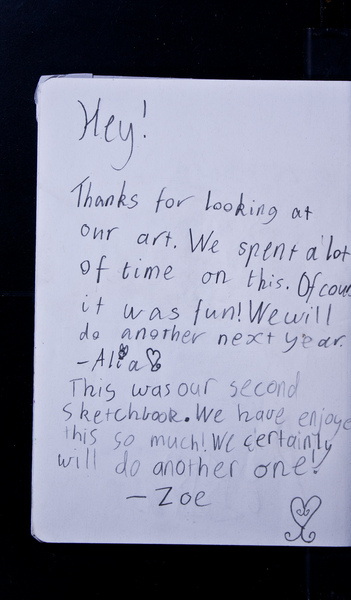 Hey!
Thanks for looking at
our art. We spent a lot
of time on this. Of cou
it was fun! We will
do another next year.
-Alia
This was our second
Sketchbook. We have enjoye
this so much! We certainly
will do another one!
- Zoe